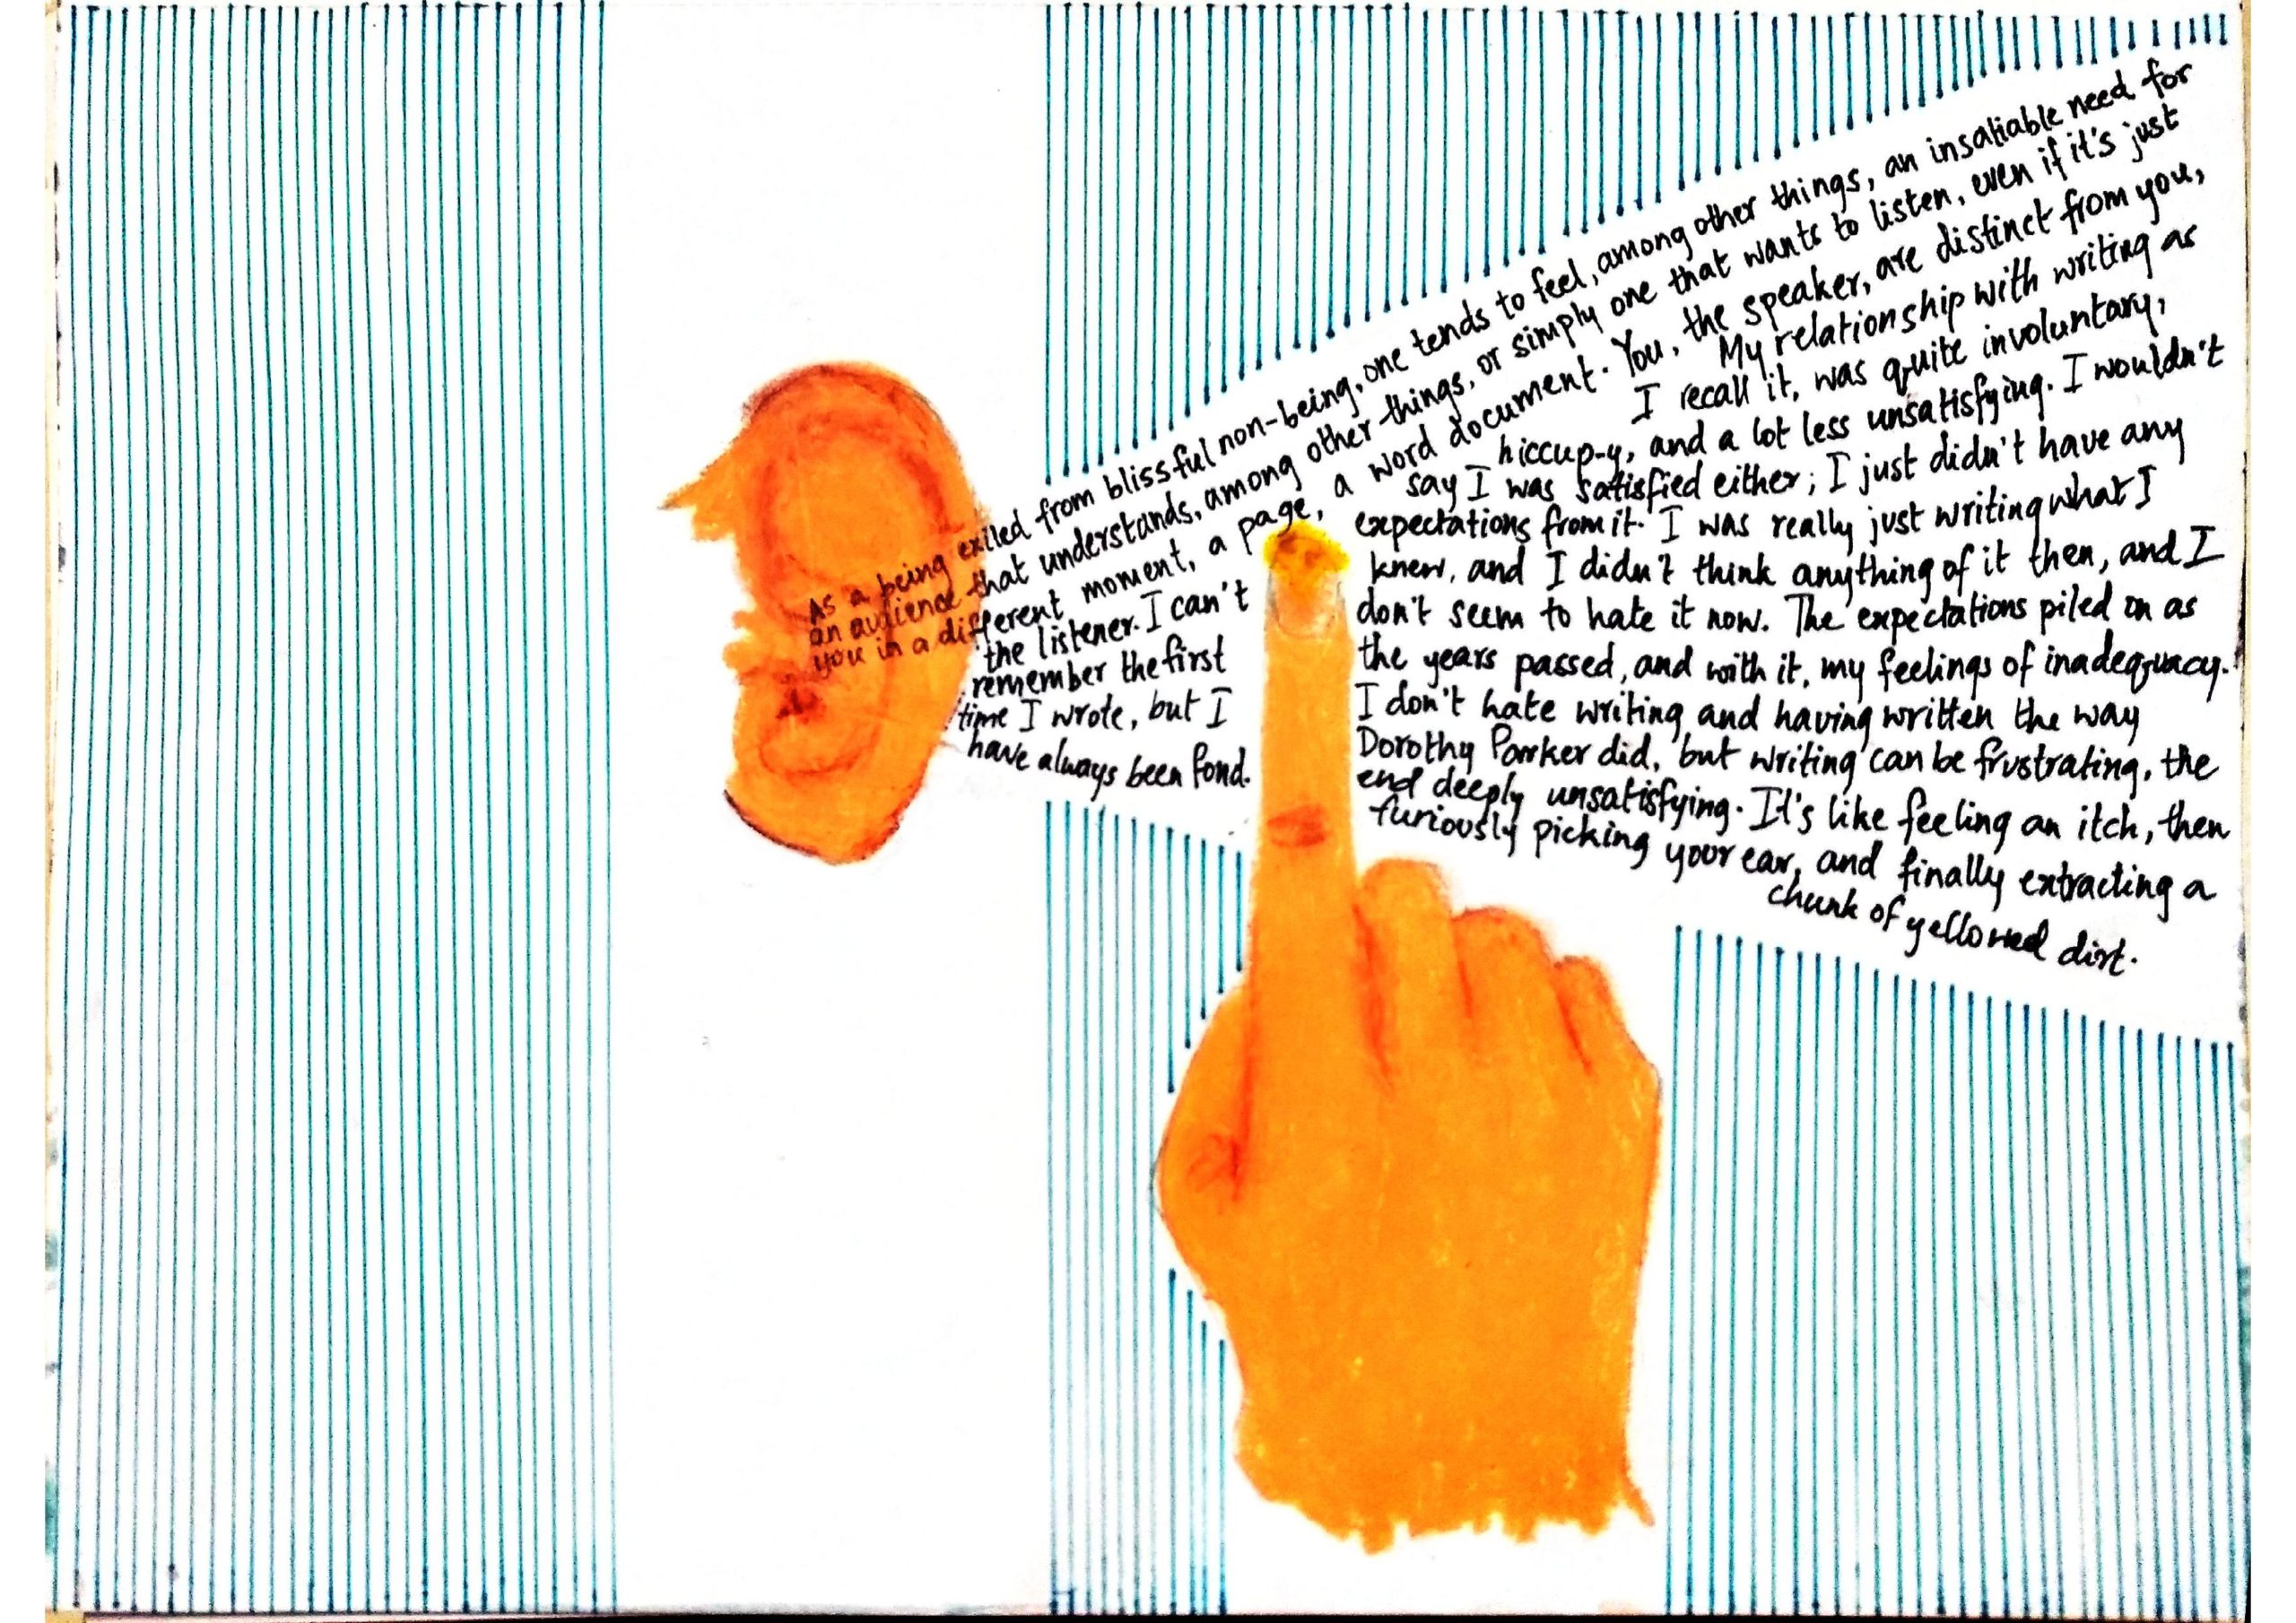 As a being exiled from blissful non-being, one tends to feel, among other things, an insatiable need for
an audience that understands, among other things, or simply one that wants to listen, even if it's just
you in a different moment, a page, a word document. You, the speaker, are distinct from you,
the listener. I can't
remember the first
time I wrote, but I
have always been fond.
My relationship with writing as
I recall it, was quite involuntary,
hiccup-y, and a lot less unsatisfying. I wouldn't
say I was satisfied either; I just didn't have any
expectations from it. I was really just writing what I
knew, and I didn't think anything of it then, and I
don't seem to hate it now. The expectations piled on as
the years passed, and with it, my feelings of inadequacy.
I don't hate writing and having written the way
Dorothy Parker did, but writing can be frustrating, the
end deeply unsatisfying. It's like feeling an itch, then
furiously picking your ear, and finally extracting a
chunk of yellowed dirt.